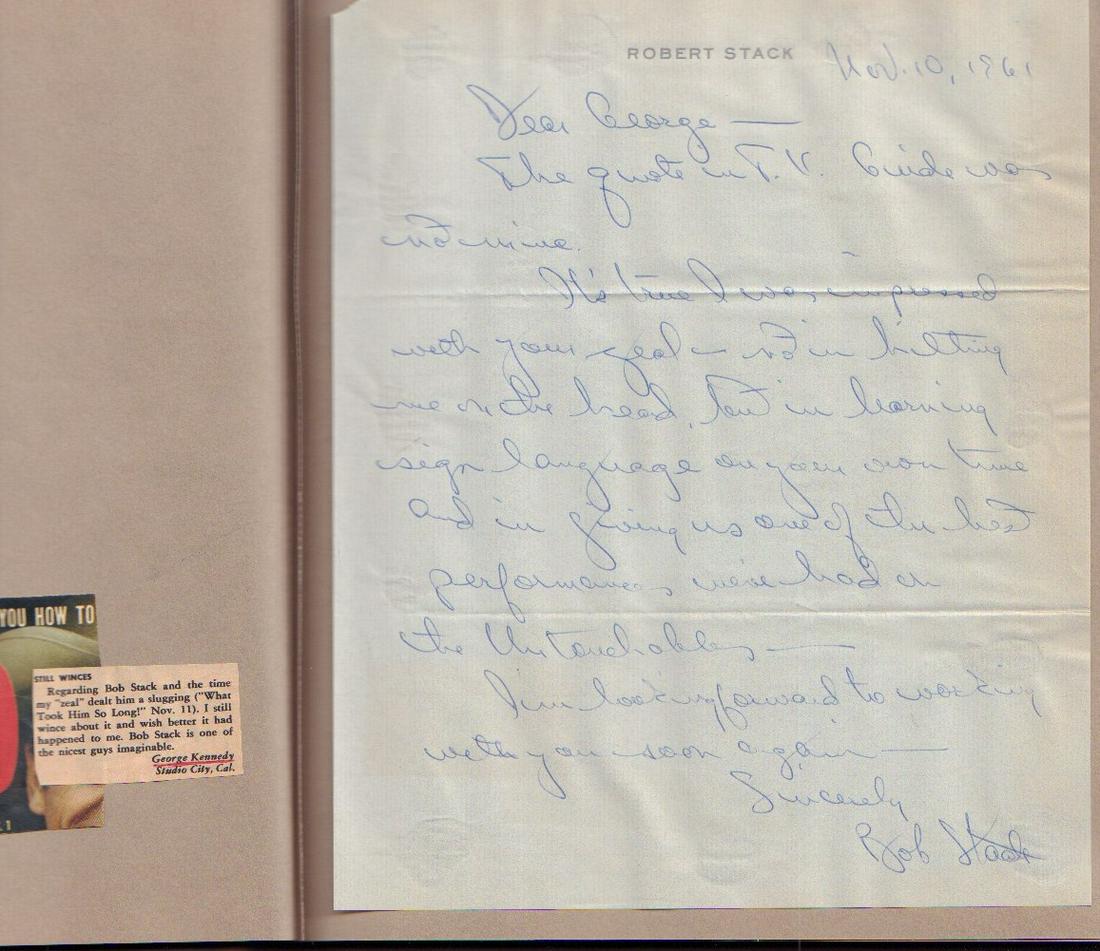 YOU HOW TO
STILL WINCES
Regarding Bob Stack and the time
my "zeal" dealt him a slugging ("What
Took Him So Long!" Nov. 11). I still
wince about it and wish better it had
happened to me. Bob Stack is one of
the nicest guys imaginable.
George Kennedy
Studio City, Cal.
ROBERT STACK
Nov. 10, 1961
Dear George —
The quote in T.V. Guide was
not mine.
It's true I was impressed
with your zeal — not in hitting
me on the head, but in learning
sign language on your own time
and in giving us one of the best
performances we've had on
the Untouchables —
I'm looking forward to working
with you soon again —
Sincerely
Bob Stack